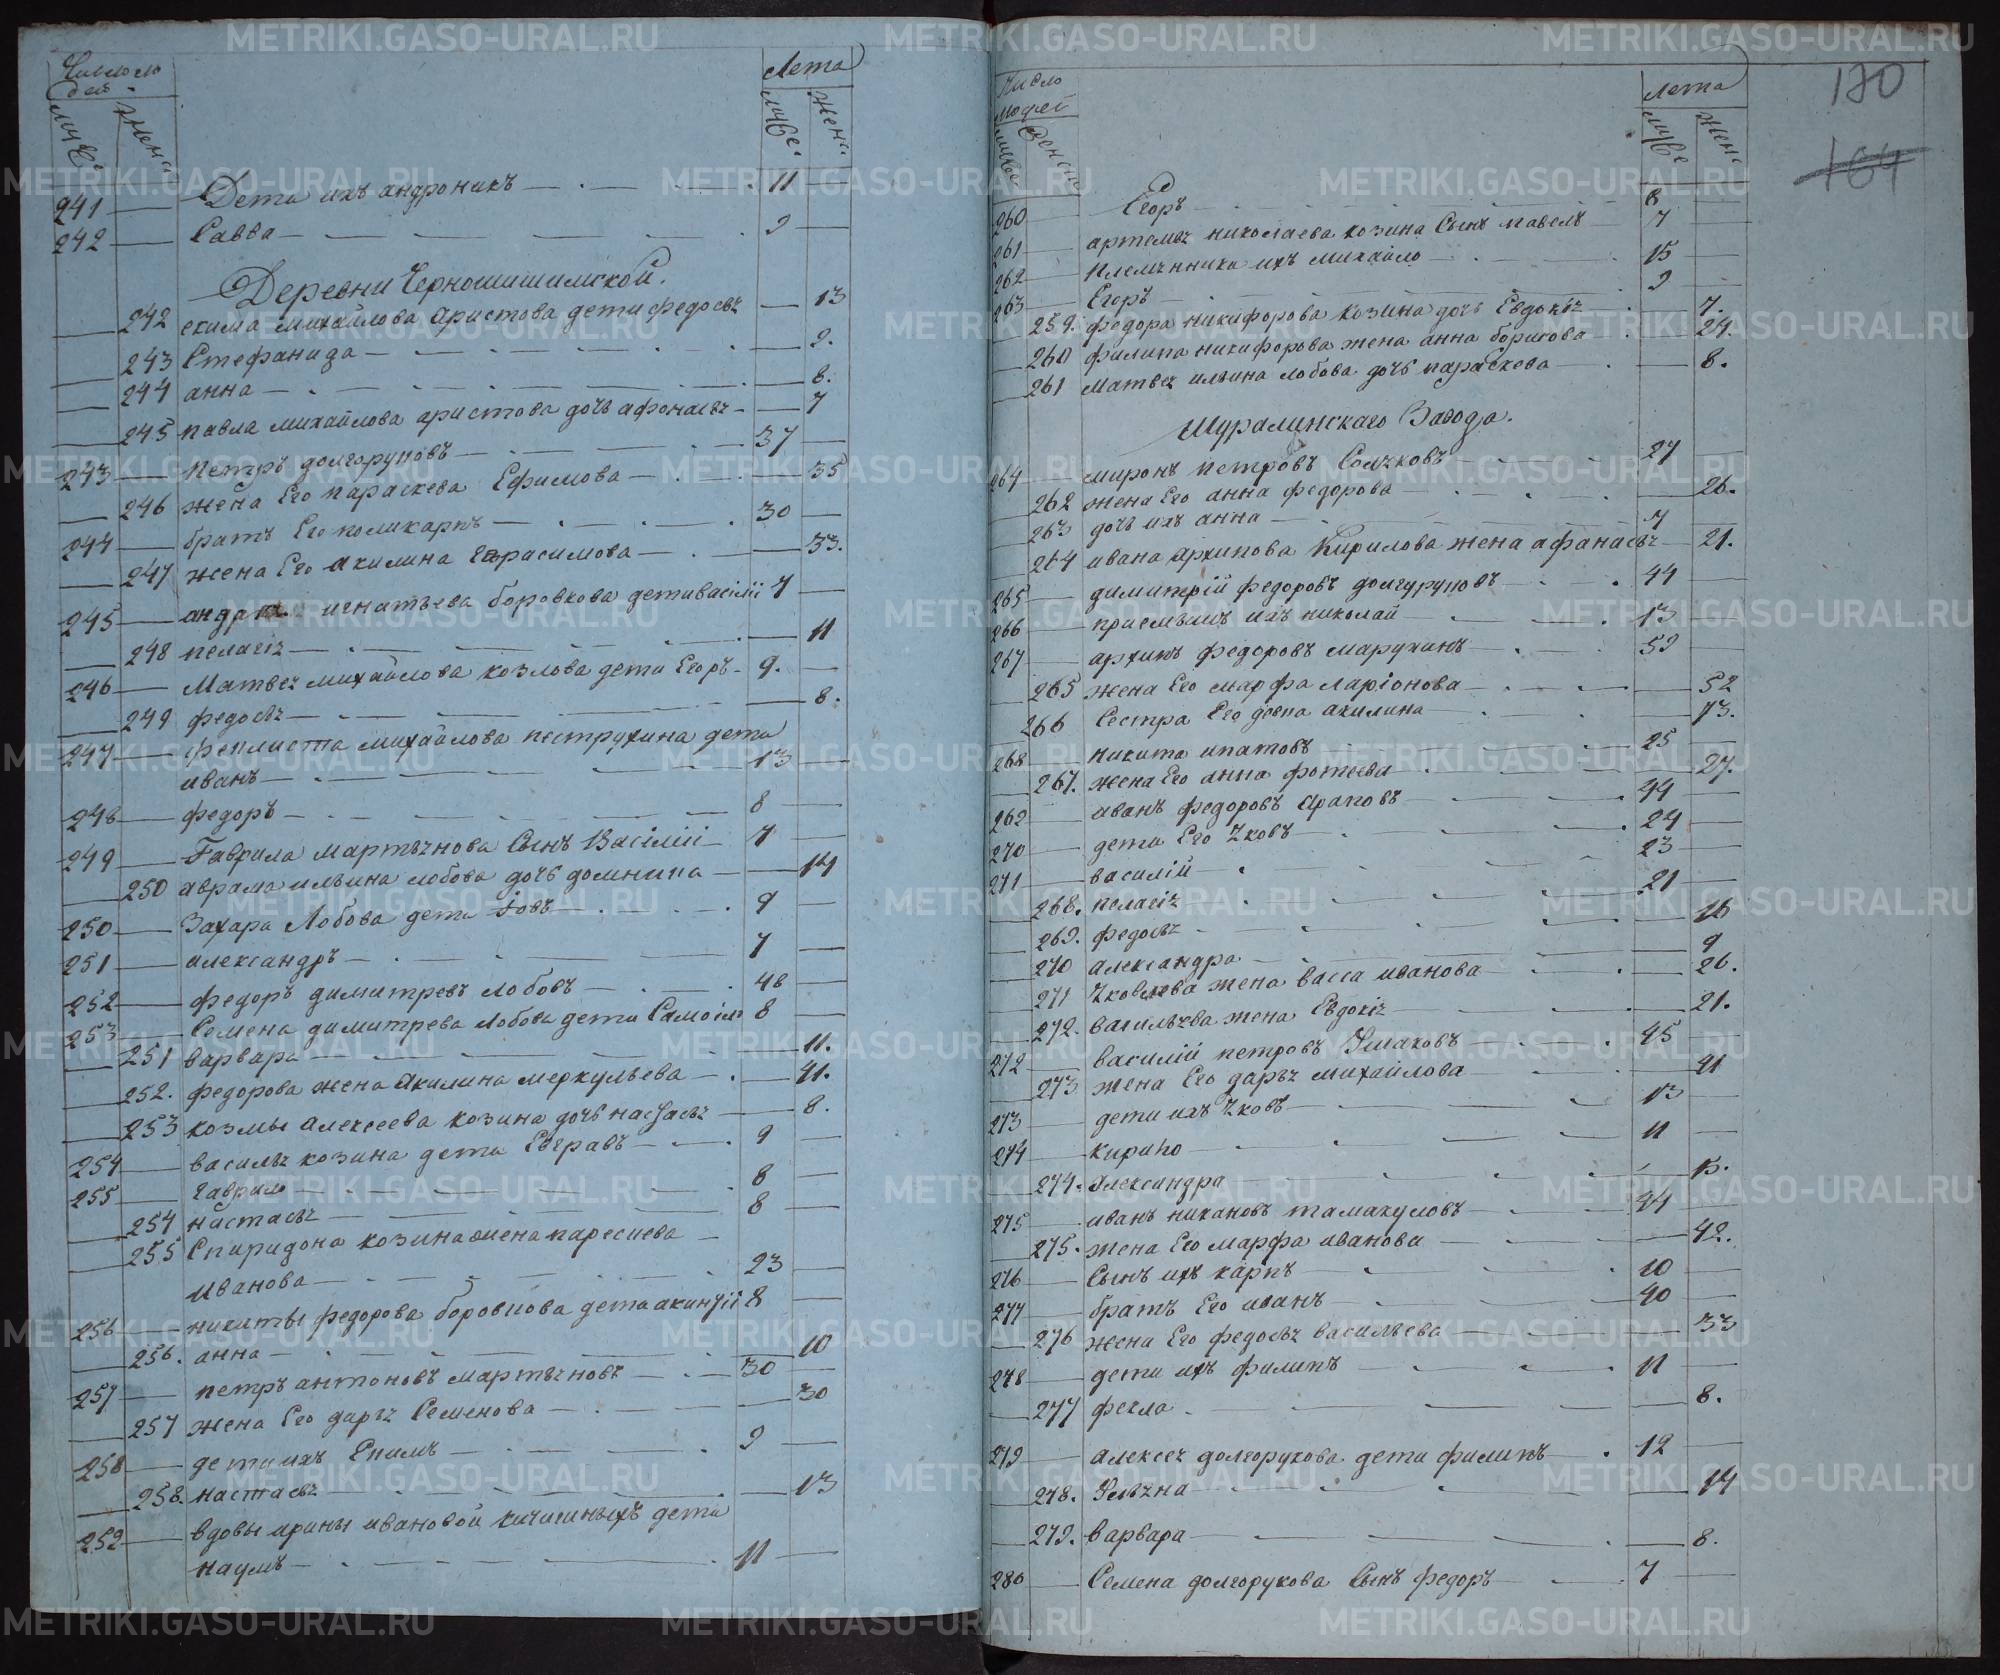 Число лю
дей.
муже.
женс.
Лета
муже.
женс.
241 Дети ихъ андроникъ 11
242 Савва 9
Деревни Черношишимской.
242 екима михайлова аристова дети федосья 13
243 Стефанида 9.
244 анна 8.
245 павла михайлова аристова дочь афонасья 7
243 петръ долгоруповъ 37
246 жена Его параскева Ефимова 35
244 братъ Его поликарпъ 30
247 жена Его акилина Герасимова 33.
245 игнатьева боровкова дети василiй 7
248 пелагiя 11
246 Матвея михайлова козлова дети Егоръ 9.
249 федосья 8.
247 феплиста михайлова пеструхина дети
иванъ 13
248 федоръ 8
249 Гаврила мартьянова Сынъ Василiй 7
250 аврама ильина лобова дочь домника 14
250 Захара Лобова дети iовъ 9
251 александръ 7
252 федоръ димитревъ лобовъ 48
253 Семена димитрева лобова дети Самоiло 8
251 варвара 11.
252. федорова жена акилина меркульева 41.
253 козмы алексеева козина дочь настасья 8.
254 василья козина дети Евгравъ 9
255 гаврило 8
254 настасья 8
255 Спиридона козина жена
иванова 23
256 никиты федорова боровкова дети акинфiй 8
256. анна 10
257 петръ антоновъ мартьяновъ 30
257 жена Его дарья Семенова 30
258 дети ихъ Екимъ 9
258. настасья 13
259 вдовы ирины ивановой кичигиныхъ дети
наумъ 11
180
164
Число
людей
муже
женск
лета
муже
женс
260 Егоръ 8
261 артемья николаева козина Сынъ павелъ 7
262 племянники ихъ михайло 15
263 Егоръ 9
259. федора никифорова козина дочь Евдокiя 7.
260 филипа никифорова жена анна борисова 24.
261 матвея ильина лобова дочь параскева 8.
Шуралинскаго Завода.
264 миронъ петровъ Солчковъ 27
262 жена Его анна федорова 26.
263 дочь ихъ анна 7
264 ивана архипова Кирилова жена афанасья 21.
265 димитрiй федоровъ долгуруповъ 44
266 прiемышъ ихъ николай 13
267 архипъ федоровъ марухинъ 59
265 жена Его марфа ларiонова 52
266 Сестра Его девка акилина 73.
268 никита ипатовъ 25
267. жена Его анна фотеева 27.
269 иванъ федоровъ араповъ 44
270 дети Его Яковъ 24
271 василiй 23
268. пелагiя 21
269. федосья 16
270 александра 9
271 Яковлева жена васса иванова 26.
272. васильева жена Евдокiя 21.
272 василiй петровъ Ушаковъ 45
273 жена Его дарья михайлова 41
273 дети ихъ Яковъ 13
274 кирило 11
274. александра 15.
275 иванъ никановъ тамакуловъ 44
275. жена Его марфа иванова 42.
276 Сынъ ихъ карпъ 10
277 братъ Его иванъ 40
276 жена Его федосья васильева 33
278 дети ихъ филипъ 11
277 фекла 8.
279 алексея долгорукова дети филипъ 12
278. Ульяна 14
279. варвара 8.
280 Семена долгорукова Сынъ федоръ 7